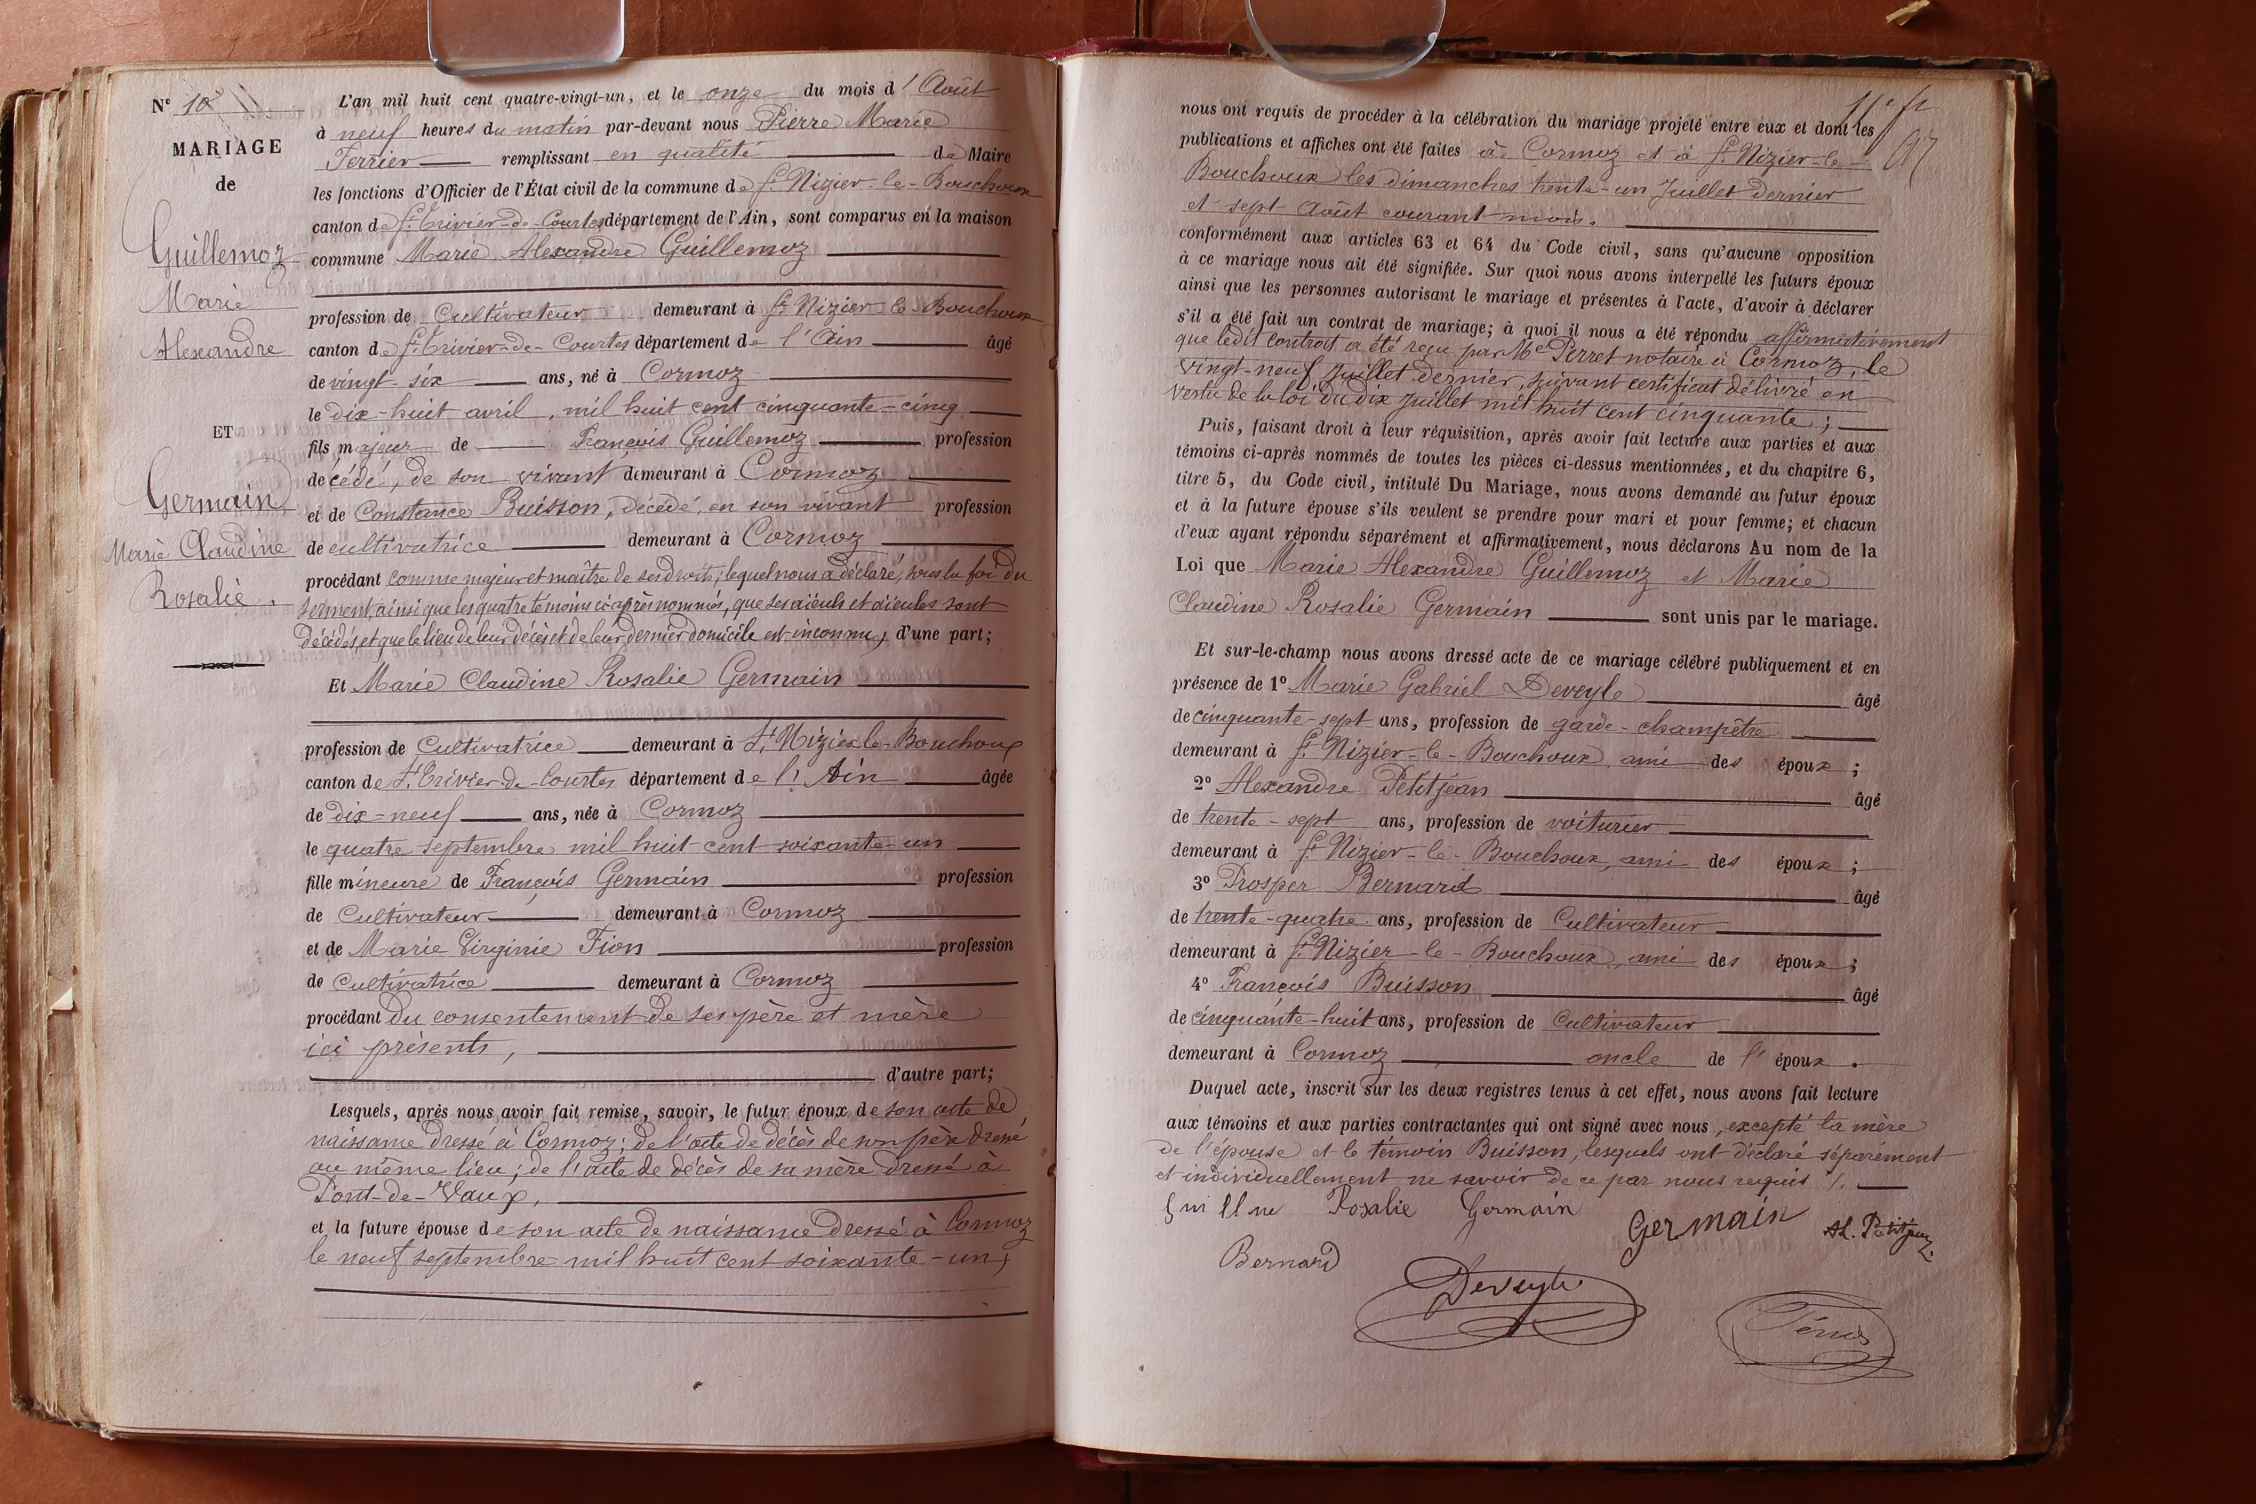 N° 10
MARIAGE
de
Guillemoz
Marie
Alexandre
ET
Germain
Marie Claudine
Rosalie.
L'an mil huit cent quatre-vingt-un, et le onze du mois d'Août
à neuf heures du matin par-devant nous Pierre Marie
Ferrier remplissant en qualité de Maire
les fonctions d'Officier de l'État civil de la commune de St Nizier-le-Bouchoux
canton de St Trivier-de-Courtes département de l'Ain, sont comparus en la maison
commune Marie Alexandre Guillemoz
profession de Cultivateur demeurant à St Nizier-le-Bouchoux
canton de St Trivier-de-Courtes département de l'Ain âgé
de vingt-six ans, né à Cormoz
le dix-huit avril, mil huit cent cinquante-cinq
fils majeur de François Guillemoz profession
décédé, de son vivant demeurant à Cormoz
et de Constance Buisson, décédé, en son vivant profession
de cultivatrice demeurant à Cormoz
procédant comme majeur et maître de ses droits; lequel nous a déclaré, sous la foi du
serment, ainsi que les quatre témoins ci-après nommés, que ses aïeuls et aïeules sont
décédés et que le lieu de leur décès et de leur dernier domicile est inconnu, d'une part;
Et Marie Claudine Rosalie Germain
profession de Cultivatrice demeurant à St Nizier-le-Bouchoux
canton de St Trivier-de-Courtes département de l'Ain âgée
de dix-neuf ans, née à Cormoz
le quatre septembre mil huit cent soixante-un
fille mineure de François Germain profession
de Cultivateur demeurant à Cormoz
et de Marie Virginie Fion profession
de Cultivatrice demeurant à Cormoz
procédant du consentement de ses père et mère
ici présents,
d'autre part;
Lesquels, après nous avoir fait remise, savoir, le futur époux de son acte de
naissance dressé à Cormoz; de l'acte de décès de son père dressé
au même lieu; de l'acte de décès de sa mère dressé à
Pont-de-Vaux,
et la future épouse de son acte de naissance dressé à Cormoz
le neuf septembre mil huit cent soixante-un,
nous ont requis de procéder à la célébration du mariage projeté entre eux et dont les
publications et affiches ont été faites à Cormoz et à St Nizier-le-
Bouchoux les dimanches trente-un Juillet dernier
et sept Août courant mois.
conformément aux articles 63 et 64 du Code civil, sans qu'aucune opposition
à ce mariage nous ait été signifiée. Sur quoi nous avons interpellé les futurs époux
ainsi que les personnes autorisant le mariage et présentes à l'acte, d'avoir à déclarer
s'il a été fait un contrat de mariage; à quoi il nous a été répondu affirmativement
que ledit contrat a été reçu par Me Perret notaire à Cormoz, le
vingt-neuf Juillet dernier, suivant certificat délivré en
vertu de la loi du dix Juillet mil huit cent cinquante;
Puis, faisant droit à leur réquisition, après avoir fait lecture aux parties et aux
témoins ci-après nommés de toutes les pièces ci-dessus mentionnées, et du chapitre 6,
titre 5, du Code civil, intitulé Du Mariage, nous avons demandé au futur époux
et à la future épouse s'ils veulent se prendre pour mari et pour femme; et chacun
d'eux ayant répondu séparément et affirmativement, nous déclarons Au nom de la
Loi que Marie Alexandre Guillemoz et Marie
Claudine Rosalie Germain sont unis par le mariage.
Et sur-le-champ nous avons dressé acte de ce mariage célébré publiquement et en
présence de 1° Marie Gabriel Deveyle âgé
de cinquante-sept ans, profession de garde-champêtre
demeurant à St Nizier-le-Bouchoux, ami des époux;
2° Alexandre Petitjean âgé
de trente-sept ans, profession de voiturier
demeurant à St Nizier-le-Bouchoux, ami des époux;
3° Prosper Bernard âgé
de trente-quatre ans, profession de Cultivateur
demeurant à St Nizier-le-Bouchoux, ami des époux;
4° François Buisson âgé
de cinquante-huit ans, profession de Cultivateur
demeurant à Cormoz oncle de l'époux.
Duquel acte, inscrit sur les deux registres tenus à cet effet, nous avons fait lecture
aux témoins et aux parties contractantes qui ont signé avec nous, excepté la mère
de l'épouse et le témoin Buisson, lesquels ont déclaré séparément
et individuellement ne savoir de ce par nous requis.
Rosalie Germain Germain Al. Petitjean
Bernard
Deveyle